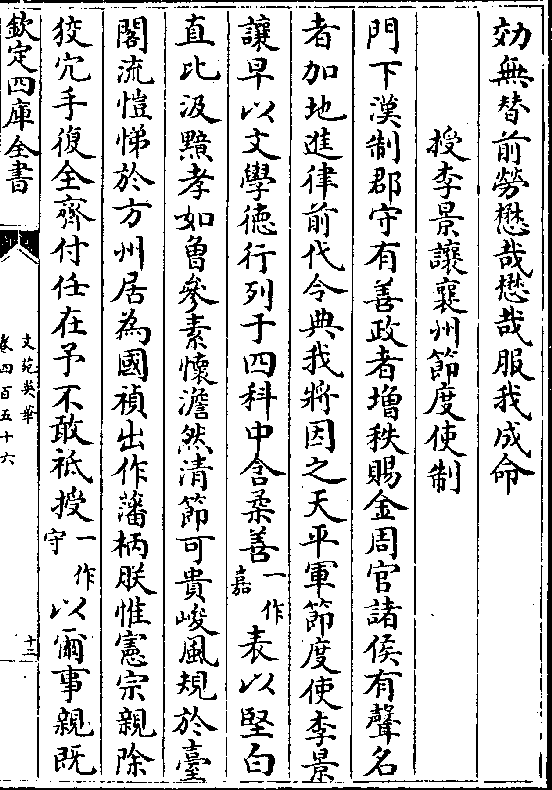 効無替前勞懋哉懋哉服我成命
授李景讓襄州節度使制
門下漢制郡守有善政者增秩賜金周官諸侯有聲名
者加地進律前代令典我將因之天平軍節度使李景
讓早以文學徳行列于四科中含柔善一作嘉表以堅白
直比汲黯孝如曾參素懷澹然清節可貴峻風規於臺
閣流愷悌於方州居為國禎出作藩柄朕惟憲宗親除
狡穴手復全齊付任在予不敢祗授一作守以爾事親既
欽定四庫全書
文苑英華
卷四百五十六
十二